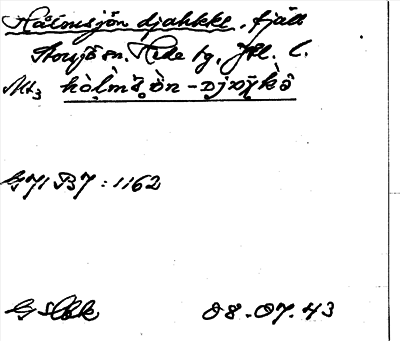 Hålmsjön djahkke, fjäll
Storsjö sn. Hede tg. Jtl. l.
Mt3 hòlms̀òn-djɒχkò
G 71 B7 : 1162
08.07.43